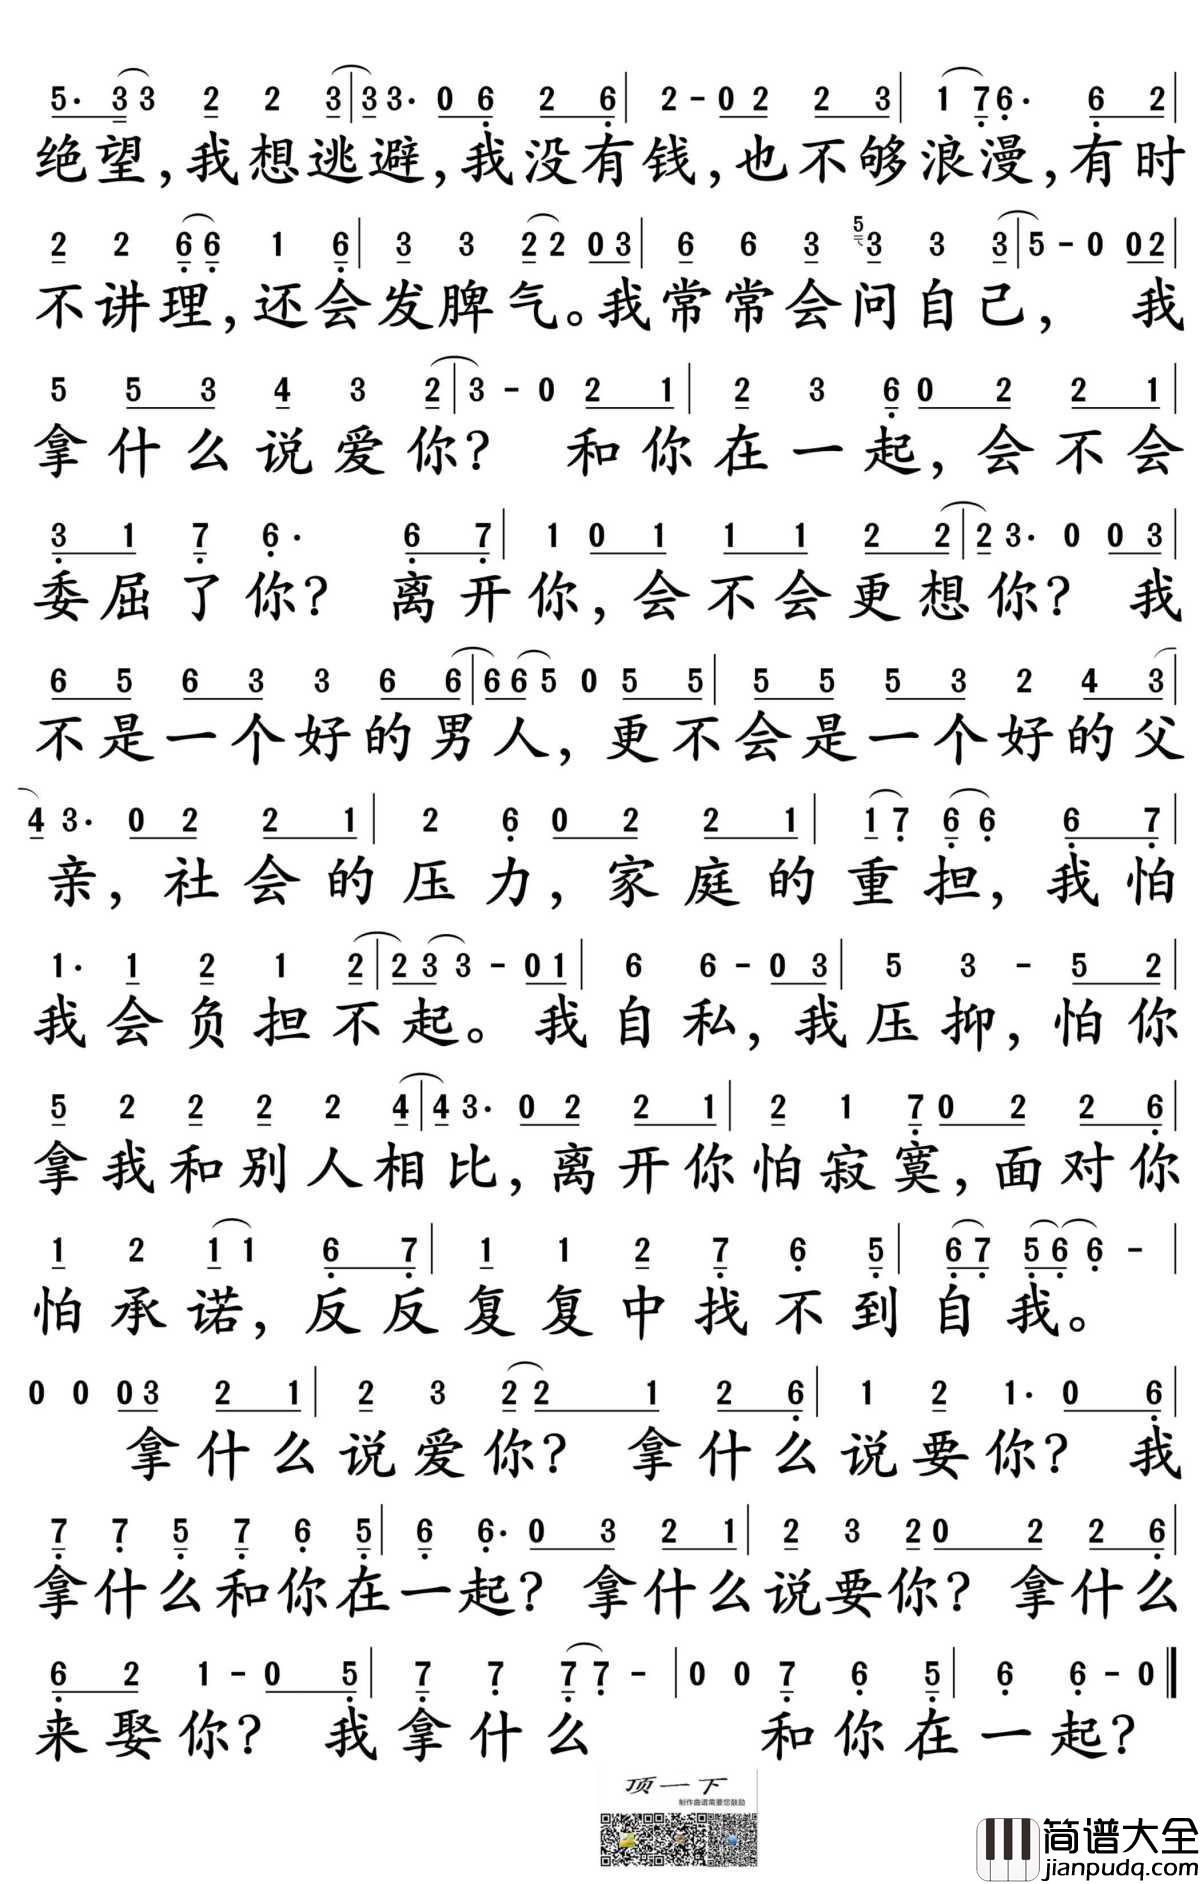 5· 3 3 2 2 3 | 3 3· 0 6 2 6 | 2 - 0 2 2 3 | 1 7 6· 6 2 |
绝望,我想逃避,我没有钱,也不够浪漫,有时
2 2 6 6 1 6 | 3 3 2 2 0 3 | 6 6 3 5 3 3 3 | 5 - 0 0 2 |
不讲理,还会发脾气。我常常会问自己, 我
5 5 3 4 3 2 | 3 - 0 2 1 | 2 3 6 0 2 2 1 |
拿什么说爱你? 和你在一起,会不会
3 1 7 6· 6 7 | 1 0 1 1 1 2 2 | 2 3· 0 0 3 |
委屈了你? 离开你,会不会更想你? 我
6 5 6 3 3 6 6 | 6 6 5 0 5 5 | 5 5 5 3 2 4 3 |
不是一个好的男人,更不会是一个好的父
4 3· 0 2 2 1 | 2 6 0 2 2 1 | 1 7 6 6 6 7 |
亲,社会的压力,家庭的重担,我怕
1· 1 2 1 2 | 2 3 3 - 0 1 | 6 6 - 0 3 | 5 3 - 5 2 |
我会负担不起。我自私,我压抑,怕你
5 2 2 2 2 4 | 4 3· 0 2 2 1 | 2 1 7 0 2 2 6 |
拿我和别人相比,离开你怕寂寞,面对你
1 2 1 1 6 7 | 1 1 2 7 6 5 | 6 7 5 6 6 - |
怕承诺,反反复复中找不到自我。
0 0 0 3 2 1 | 2 3 2 2 1 2 6 | 1 2 1· 0 6 |
拿什么说爱你? 拿什么说要你? 我
7 7 5 7 6 5 | 6 6· 0 3 2 1 | 2 3 2 0 2 2 6 |
拿什么和你在一起? 拿什么说要你? 拿什么
6 2 1 - 0 5 | 7 7 7 7 - | 0 0 7 6 5 | 6 6 - 0 ‖
来娶你? 我拿什么 和你在一起?
顶一下
制作曲谱需要您鼓励
简谱大全
jianpudq.com